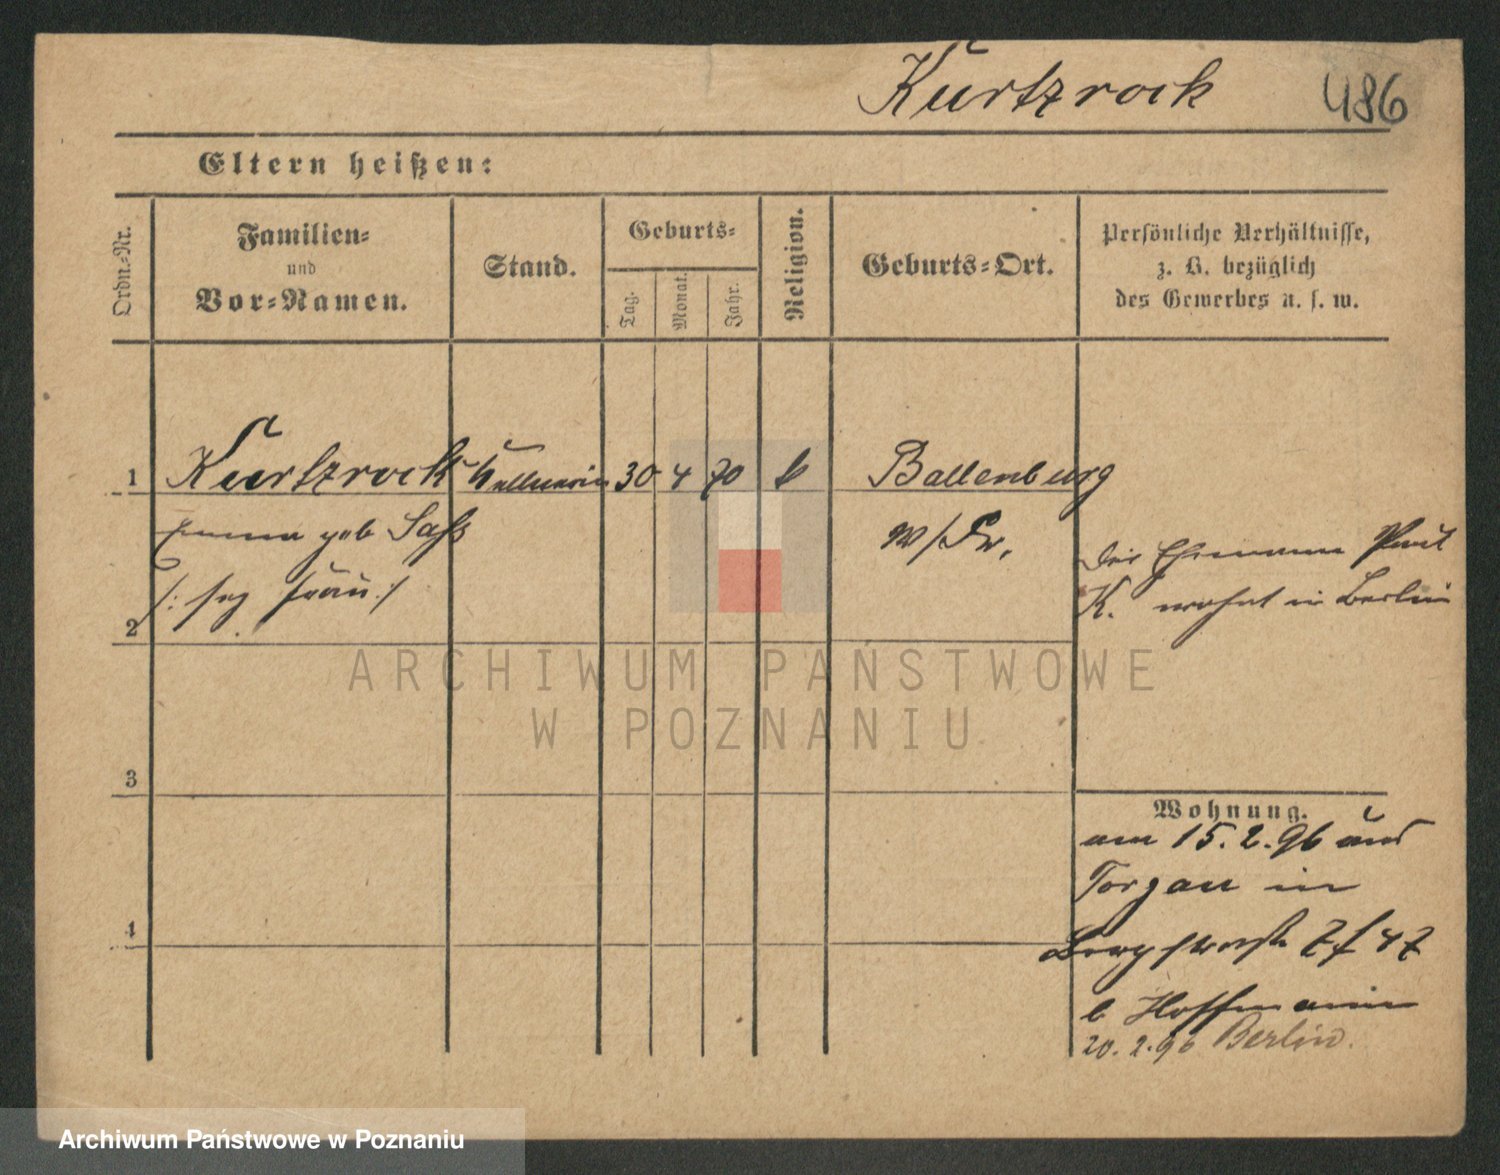 Kurtzrock 486
Eltern heißen:
Ordn.-Nr.
Familien-
und
Vor-Namen.
Stand.
Geburts-
Tag.
Monat.
Jahr.
Religion.
Geburts-Ort.
Persönliche Verhältnisse,
z. B. bezüglich
des Gewerbes u. s. w.
1 Kurtzrock Kellnerin 30 4 70 Ballenburg
Emma geb Saß
W/Pr.
Der Ehemann Paul
K. wohnt in Berlin
2
3
Wohnung.
am 15. 2. 96 aus
Torgau in
4
b Hoffmann
20. 2. 96 Berlin.
ARCHIWUM PAŃSTWOWE
W POZNANIU
Archiwum Państwowe w Poznaniu